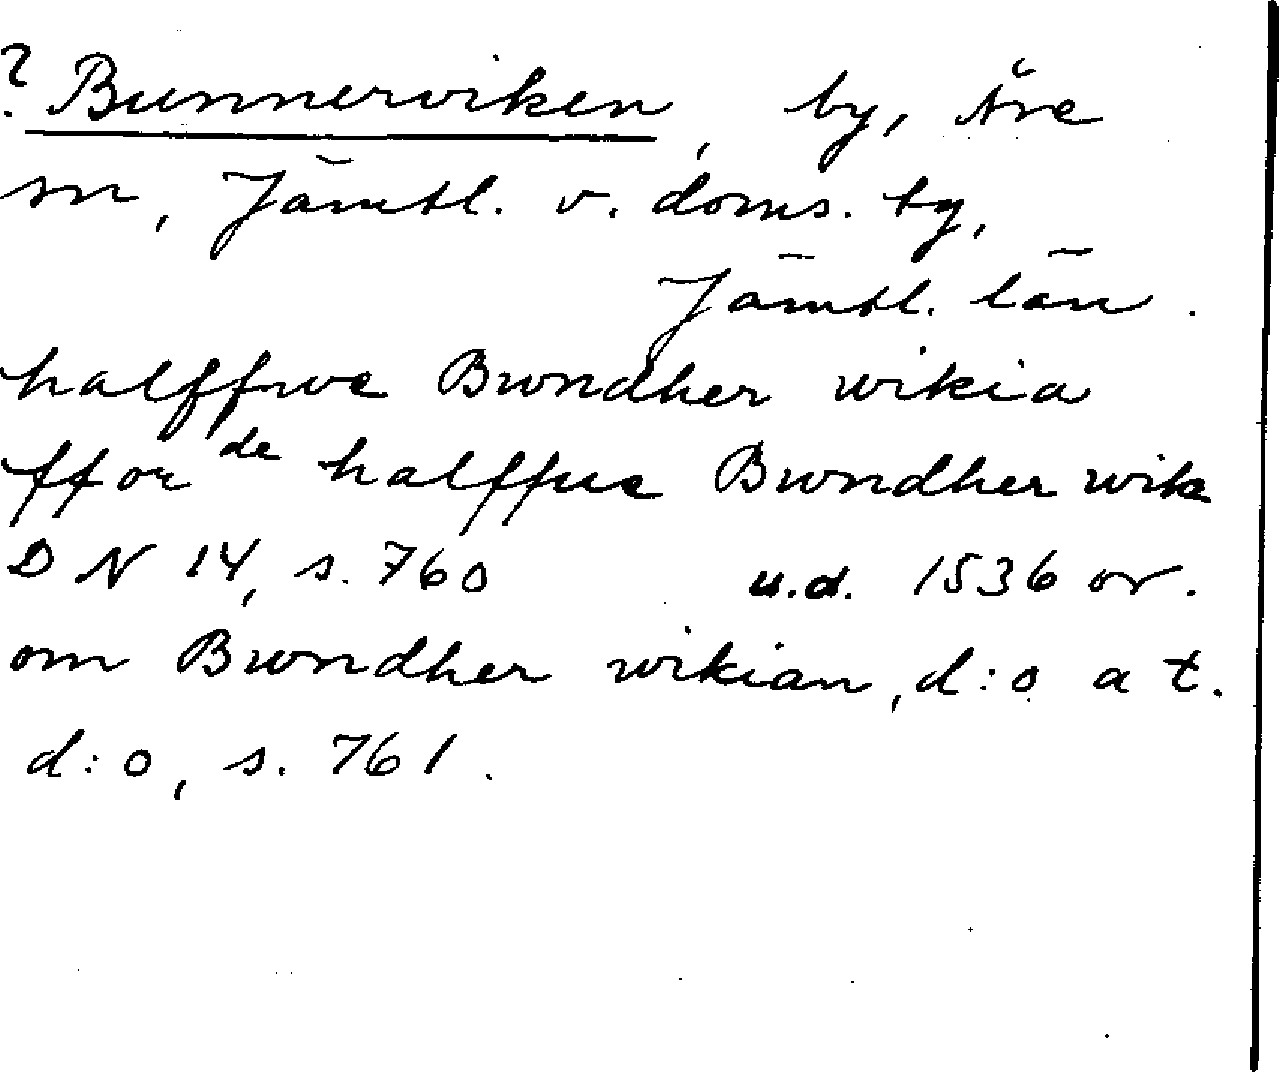 ? Bunnerviken, by, Åre
sn, Jämtl. v. doms. tg,
Jämtl. län.
halffwe Bwndher wikia
ffor de halffue Bwndher wik
DN 14, s. 760 u.d. 1536 or.
om Bwndher wikian, d:o a t.
d:o, s. 761.